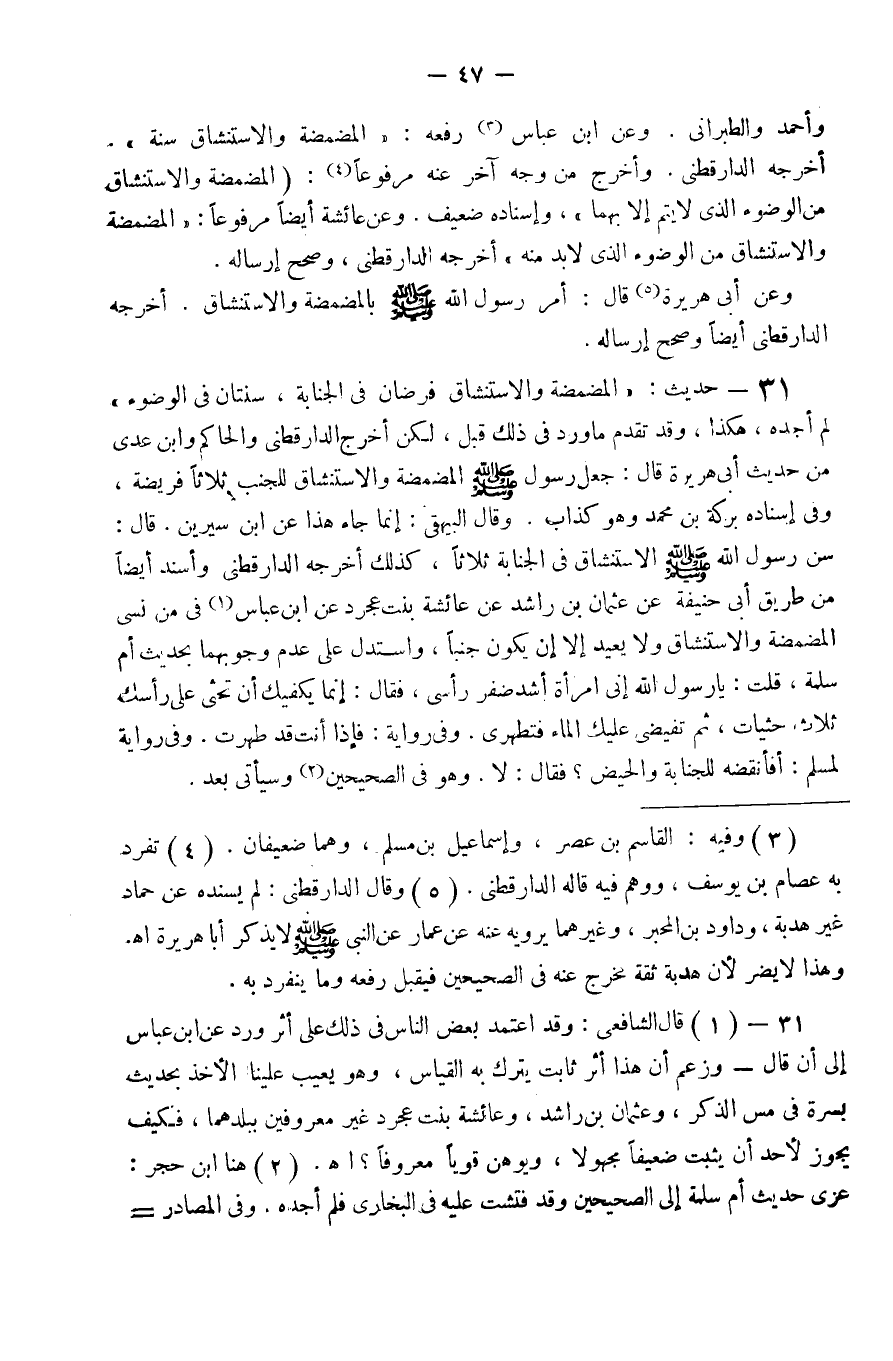 — ٤٧ —
وأحمد والطبرانى . وعن ابن عباس (٣) رفعه : « المضمضة والاستنشاق سنة » .
أخرجه الدارقطنى . وأخرج من وجه آخر عنه مرفوعاً (٤) : ( المضمضة والاستنشاق
من الوضوء الذى لايتم إلا بهما » ، وإسناده ضعيف . وعن عائشة أيضاً مرفوعاً : « المضمضة
والاستنشاق من الوضوء الذى لابد منه » أخرجه الدارقطنى ، وصحح إرساله .
وعن أبى هريرة (٥) قال : أمر رسول الله ﷺ بالمضمضة والاستنشاق . أخرجه
الدارقطنى أيضاً وصحح إرساله .
٣١ — حديث : « المضمضة والاستنشاق فرضان فى الجنابة ، سنتان فى الوضوء »
لم أجده ، هكذا ، وقد تقدم ماورد فى ذلك قبل ، لكن أخرج الدارقطنى والحاكم وابن عدى
من حديث أبى هريرة قال : جعل رسول ﷺ المضمضة والاستنشاق للجنب ثلاثاً فريضة ،
وفى إسناده بركة بن محمد وهو كذاب . وقال البيهقى : إنما جاء هذا عن ابن سيرين . قال :
سن رسول الله ﷺ الاستنشاق فى الجنابة ثلاثاً ، كذلك أخرجه الدارقطنى وأسند أيضاً
من طريق أبى حنيفة عن عثمان بن راشد عن عائشة بنت عجرد عن ابن عباس (١) فى من نسى
المضمضة والاستنشاق ولا يعيد إلا إن يكون جنباً ، واستدل على عدم وجوبهما بحديث أم
سلمة ، قلت : يارسول الله إنى امرأة أشد ضفر رأسى ، فقال : إنما يكفيك أن تحثى على رأسك
ثلاث حثيات ، ثم تفيضى عليك الماء فتطهرى . وفى رواية : فإذا أنت قد طهرت . وفى رواية
لمسلم : أفأنقضه للجنابة والحيض ؟ فقال : لا . وهو فى الصحيحين (٢) وسيأتى بعد .
( ٣ ) وفيه : القاسم بن عصر ، وإسماعيل بن مسلم ، وهما ضعيفان . ( ٤ ) تفرد
به عصام بن يوسف ، ووهم فيه قاله الدارقطنى . ( ٥ ) وقال الدارقطنى : لم يسنده عن حماد
غير هدبة ، وداود بن المحبر ، وغيرهما يرويه عنه عن عمار عن النبى ﷺ لايذكر أبا هريرة اه.
وهذا لايضر لأن هدبة ثقة مخرج عنه فى الصحيحين فيقبل رفعه وما ينفرد به .
٣١ — ( ١ ) قال الشافعى : وقد اعتمد بعض الناس فى ذلك على أثر ورد عن ابن عباس
إلى أن قال — وزعم أن هذا أثر ثابت يترك به القياس ، وهو يعيب علينا الأخذ بحديث
بسرة فى مس الذكر ، وعثمان بن راشد ، وعائشة بنت عجرد غير معروفين ببلدهما ، فكيف
يجوز لأحد أن يثبت ضعيفاً مجهولا ، ويوهن قوياً معروفاً ؟ ا ه . ( ٢ ) هنا ابن حجر :
عزى حديث أم سلمة إلى الصحيحين وقد فتشت عليه فى البخارى فلم أجده . وفى المصادر =